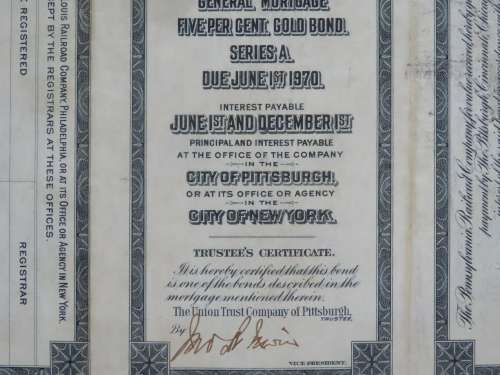 GENERAL MORTGAGE
FIVE PER CENT. GOLD BOND.
SERIES A.
DUE JUNE 1ST 1970.
INTEREST PAYABLE
JUNE 1ST AND DECEMBER 1ST
PRINCIPAL AND INTEREST PAYABLE
AT THE OFFICE OF THE COMPANY
IN THE
CITY OF PITTSBURGH,
OR AT ITS OFFICE OR AGENCY
IN THE
CITY OF NEW YORK.
TRUSTEE'S CERTIFICATE.
It is hereby certified that this bond
is one of the bonds described in the
mortgage mentioned therein.
The Union Trust Company of Pittsburgh,
TRUSTEE,
By
VICE PRESIDENT.
LOUIS RAILROAD COMPANY, PHILADELPHIA, OR AT ITS OFFICE OR AGENCY IN NEW YORK.
EPT BY THE REGISTRARS AT THESE OFFICES.
REGISTERED
REGISTRAR
The Pennsylvania Railroad Company